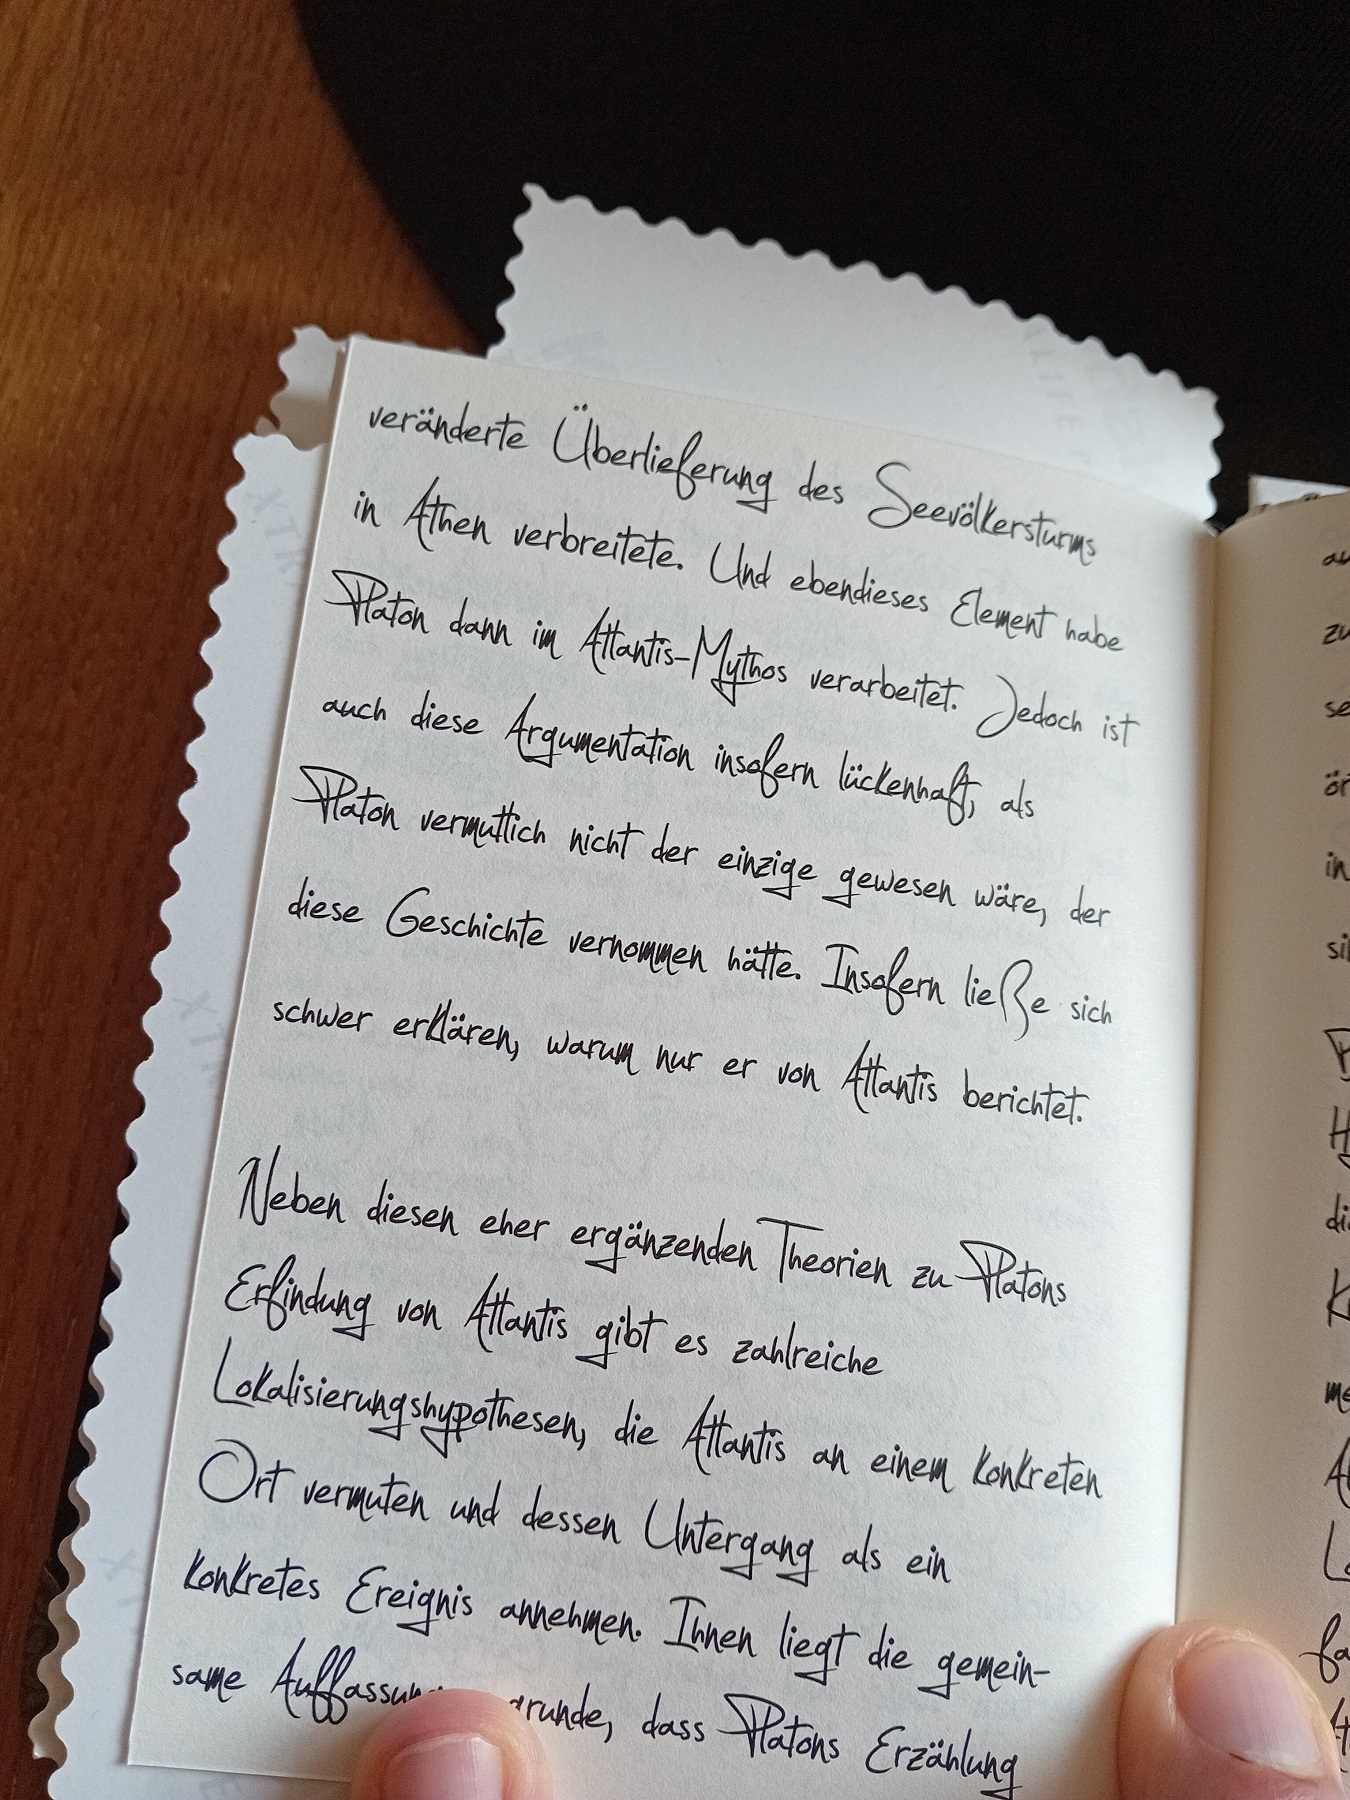 veränderte Überlieferung des Seevölkersturms
in Athen verbreitete. Und ebendieses Element habe
Platon dann im Atlantis-Mythos verarbeitet. Jedoch ist
auch diese Argumentation insofern lückenhaft, als
Platon vermutlich nicht der einzige gewesen wäre, der
diese Geschichte vernommen hätte. Insofern ließe sich
schwer erklären, warum nur er von Atlantis berichtet.
Neben diesen eher ergänzenden Theorien zu Platons
Erfindung von Atlantis gibt es zahlreiche
Lokalisierungshypothesen, die Atlantis an einem konkreten
Ort vermuten und dessen Untergang als ein
konkretes Ereignis annehmen. Ihnen liegt die gemein-
same Auffassung grunde, dass Platons Erzählung